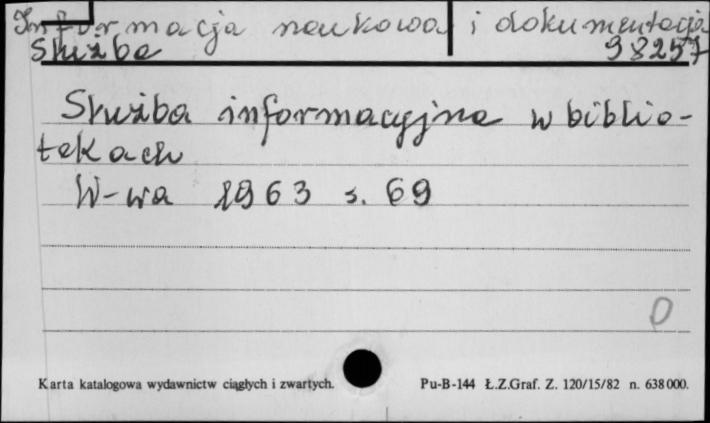 Informacja naukowa i dokumentacja
Służba 98257
Służba informacyjna w biblio-
tekach
W-wa 1963 s. 69
0
Karta katalogowa wydawnictw ciągłych i zwartych. Pu-B-144 Ł.Z.Graf. Z. 120/15/82 n. 638000.